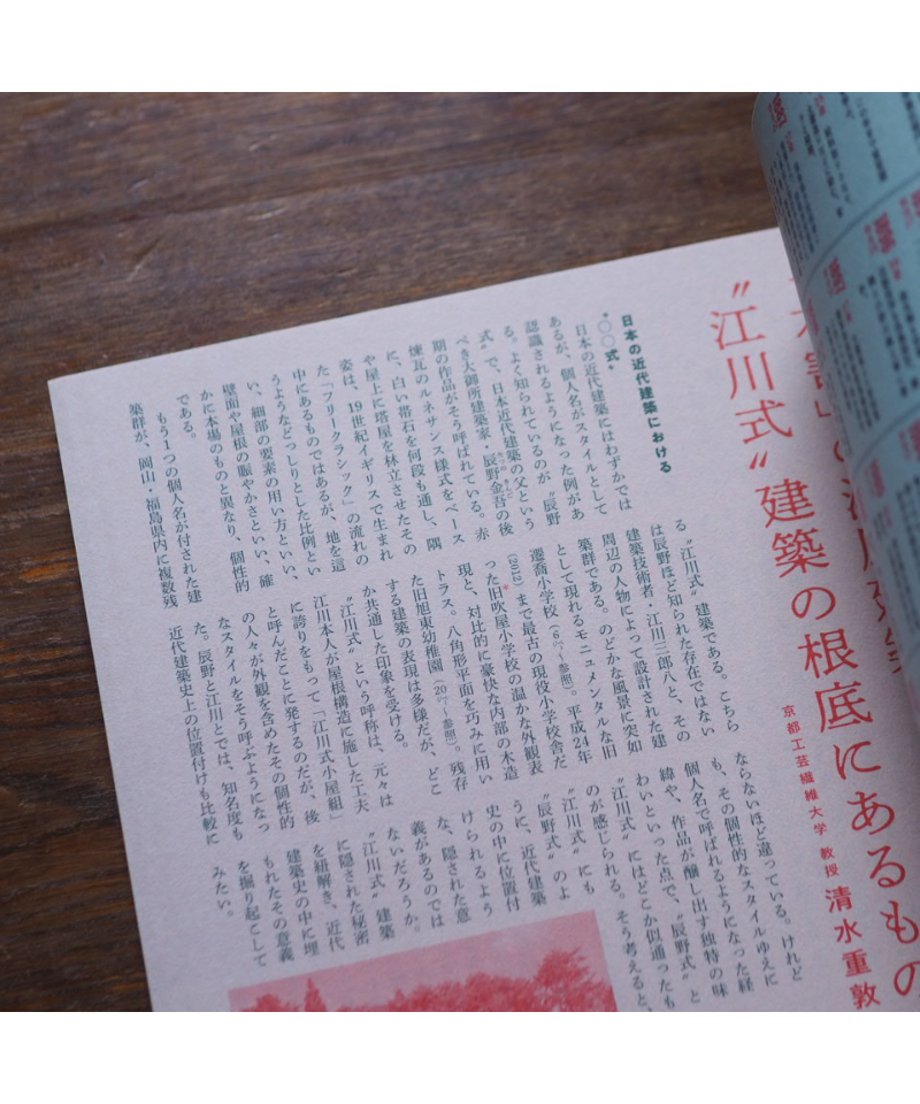 “江川式”建築の根底にあるもの
京都工芸繊維大学 教授 清水重敦
日本の近代建築における
“〇〇式”
日本の近代建築にはわずかでは
あるが、個人名がスタイルとして
認識されるようになった例があ
る。よく知られているのが、“辰野
式”で、日本近代建築の父という
べき大御所建築家・辰野金吾の後
期の作品がそう呼ばれている。赤
煉瓦のルネサンス様式をベース
に、白い帯石を何段も通し、隅
や屋上に塔屋を林立させたその
姿は、19世紀イギリスで生まれ
た「フリークラシック」の流れの
中にあるものではあるが、地を這
うようなどっしりとした比例とい
い、細部の要素の用い方といい、
壁面や屋根の賑やかさといい、確
かに本場のものと異なり、個性的
である。
もう1つの個人名が付された建
築群が、岡山・福島県内に複数残
る“江川式”建築である。こちら
は辰野ほど知られた存在ではない
建築技術者・江川三郎八と、その
周辺の人物によって設計された建
築群である。のどかな風景に突如
として現れるモニュメンタルな旧
遷喬小学校（6㌻～参照）。平成24年
（2012）まで最古の現役小学校舎だ
った旧吹屋小学校の温かな外観表
現と、対比的に豪快な内部の木造
トラス。八角形平面を巧みに用い
た旧旭東幼稚園（20㌻～参照）。残存
する建築の表現は多様だが、どこ
か共通した印象を受ける。
“江川式”という呼称は、元々は
江川本人が屋根構造に施した工夫
に誇りをもって「江川式小屋組」
と呼んだことに発するのだが、後
の人々が外観を含めたその個性的
なスタイルをそう呼ぶようになっ
た。辰野と江川とでは、知名度も
近代建築史上の位置付けも比較に
ならないほど違っている。けれど
も、その個性的なスタイルゆえに
個人名で呼ばれるようになった経
緯や、作品が醸し出す独特の味
わいといった点で、“辰野式”と
“江川式”にはどこか似通ったも
のが感じられる。そう考えると、
“江川式”にも
“辰野式”のよ
うに、近代建築
史の中に位置付
けられるよう
な、隠された意
義があるのでは
ないだろうか。
“江川式”建築
に隠された秘密
を紐解き、近代
建築史の中に埋
もれたその意義
を掘り起こして
みたい。